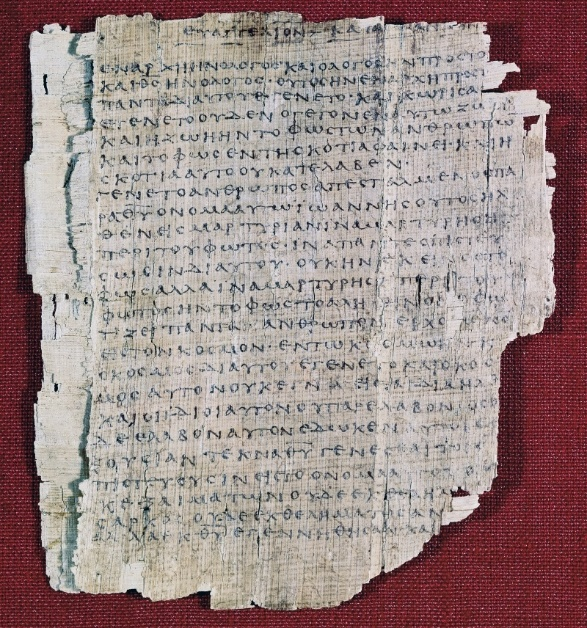 ΕΥΑΓΓΕΛΙΟΝ ΚΑ
ΕΝΑΡΧΗΗΝΟΛΟΓΟϹΚΑΙΟΛΟΓΟϹΗΝΠΡΟϹΤΟ
ΚΑΙΘϹΗΝΟΛΟΓΟϹ·ΟΥΤΟϹΗΝΕΝΑΡΧΗΠΡΟϹΤ
ΠΑΝΤΑΔΙΑΥΤΟΥΕΓΕΝΕΤΟ·ΚΑΙΧΩΡΙϹΑ
ΕΓΕΝΕΤΟΟΥΔΕΝΟΓΕΓΟΝΕ ΥΤΩΖΩ
ΚΑΙΗΖΩΗΗΝΤΟΦΩϹΤΩΝΑΝΘΡΩΠΩ
ΚΑΙΤΟΦΩϹΕΝΤΗϹΚΟΤΙΑΦΑΙΝΕΙ·ΚΑΙΗ
ϹΚΟΤΙΑΑΥΤΟΟΥΚΑΤΕΛΑΒΕΝ·
ΓΕΝΕΤΟΑΝΘΡΩΠΟϹΑΠΕϹΤΑΛΜΕΝΟϹΠΑ
ΡΑΘΥΟΝΟΜΑΑΥΤΩΪΩΑΝΝΗϹΟΥΤΟϹΗΛ
ΘΕΝΕΙϹΜΑΡΤΥΡΙΑΝΙΝΑΜΑΡΤΥΡΗϹΗ
ΠΕΡΙΤΟΥΦΩΤΟϹ·ΙΝΑΠΑΝΤΕϹΠΙϹΤΕΥ
ϹΩϹΙΝΔΙΑΥΤΟΥ·ΟΥΚΗΝΕΚΕΙΝΟϹΤΟ
ΦΩϹΑΛΛΑΙΝΑΜΑΡΤΥΡΗϹΗΠΕΡΙΤΟΥ
ΦΩΤΟϹΗΝΤΟΦΩϹΤΟΑΛΗ ΙΝΟΝ
ΤΙΖΕΙΠΑΝΤΑ·ΑΝΘΡΩΠΟΝΕΡΧΟΜΕΝΟΝ
ΕΙϹΤΟΝΚΟϹΜΟΝ·ΕΝΤΩΚΟϹΜΩΗΝ
ΟΚΟϹΜΟϹΔΙΑΥΤΟΥΕΓΕΝΕΤΟΚΑΙΟΚΟ
ΜΟϹΑΥΤΟΝΟΥΚΕΓΝΩ·ΕΙϹΤΑΙΔΙΑΗΛ
ΚΑΙΟΙΪΔΙΟΙΑΥΤΟΝΟΥΠΑΡΕΛΑΒΟΝ·ΟϹΟ
ΔΕΕΛΑΒΟΝΑΥΤΟΝΕΔΩΚΕΝΑΥΤΟΙϹ
ΞΟΥϹΙΑΝΤΕΚΝΑΘΥΓΕΝΕϹΘΑΙΤΟΙϹ
ΠΙϹΤΕΥΟΥϹΙΝΕΙϹΤΟΟΝΟΜΑΑ
ΚΕΞΑΙΜΑΤΩΝΟΥΔΕΕΚΘΕΛΗΜΑ
ϹΑΡΚΟϹΟΥΔΕΕΚΘΕΛΗΜΑΤΟϹΑΝ
ΑΛΛΑΕΚΘΥΕΓΕΝΝΗΘΗϹΑΝΚΑΙ